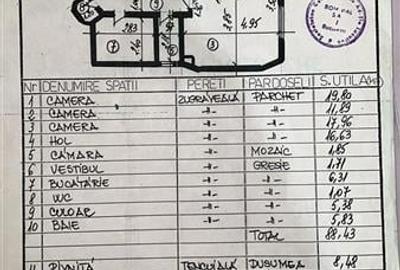 2.83
7
9
2.85
4.95
3
BOM CAL SA
Nr DENUMIRE SPATII PERETI PARDOSELI S.UTILA(m²)
1 CAMERA ZUGRĂVEALĂ PARCHET 19,80
2 CAMERA -||- -||- 11,89
3 CAMERA -||- -||- 17,96
4 HOL -||- -||- 16,63
5 CĂMARA -||- MOZAIC 1,85
6 VESTIBUL -||- GRESIE 1,71
7 BUCĂTĂRIE -||- -||- 6,31
8 WC -||- -||- 1,07
9 CULOAR -||- -||- 5,38
10 BAIE -||- -||- 5,83
TOTAL 88,43
11 PIVNIȚĂ TENCUIALĂ DUSUMEA 8,48